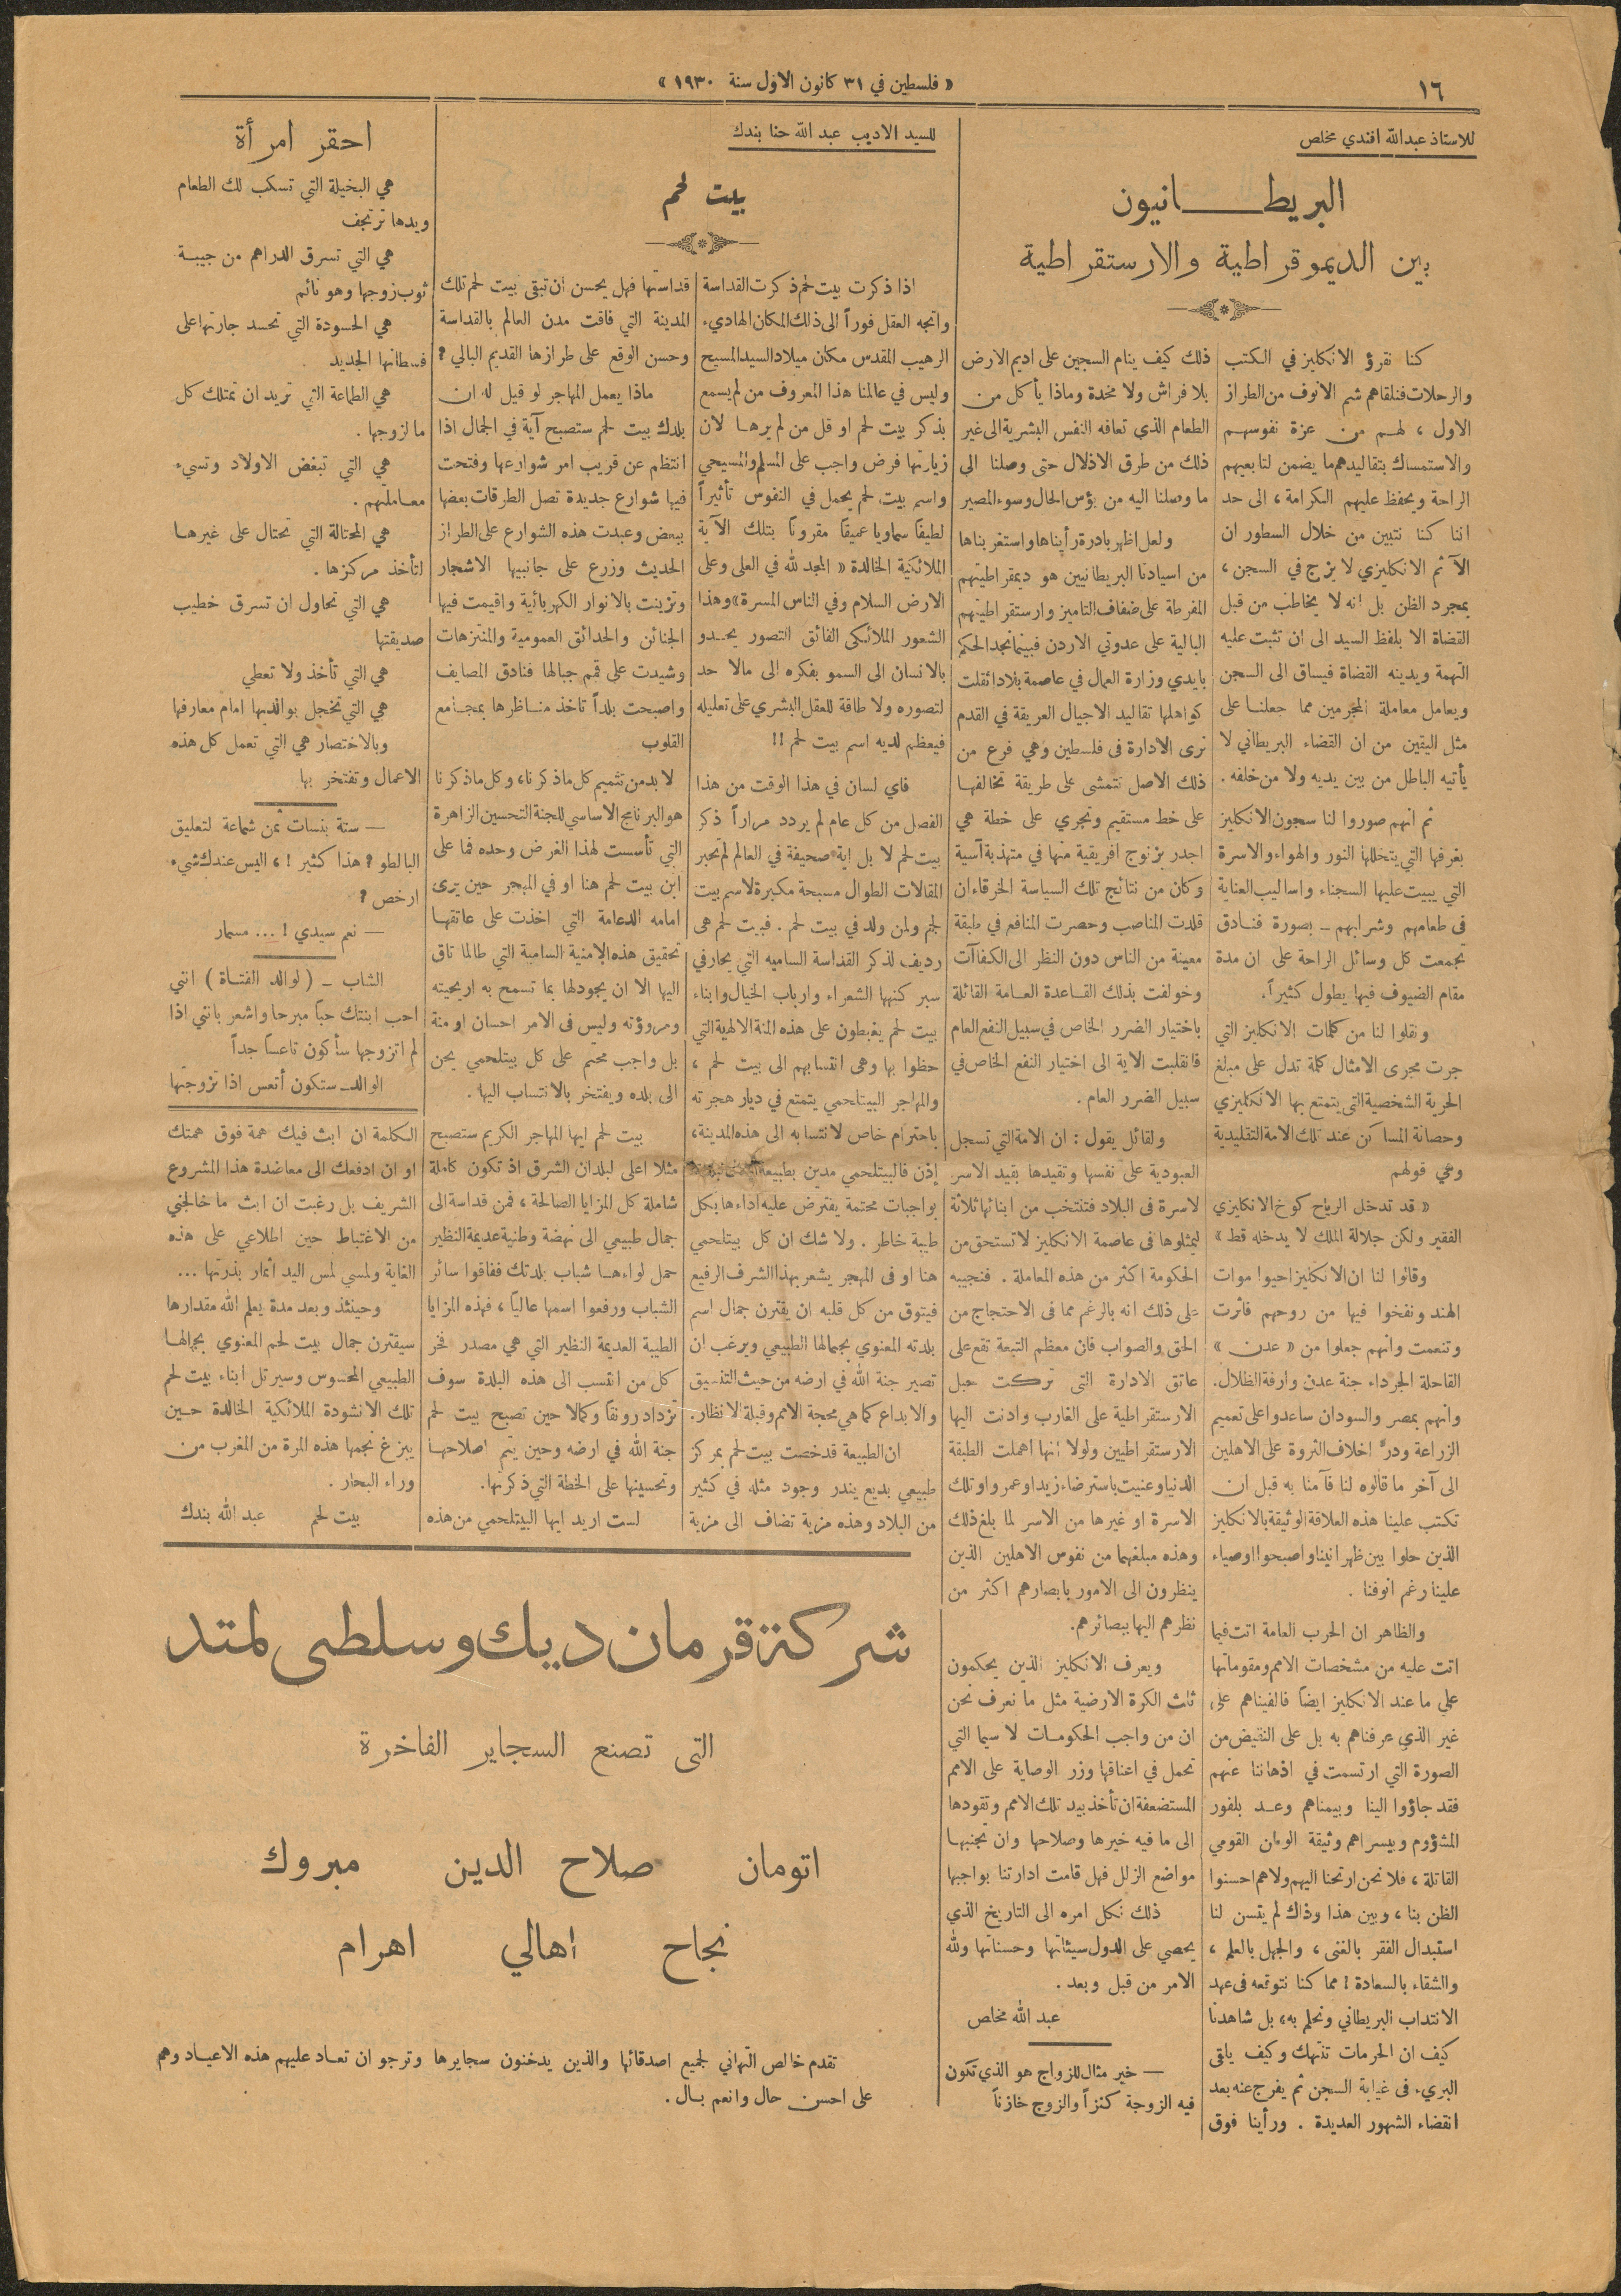 ١٦
« فلسطين في ٣١ كانون الاول سنة ١٩٣٠ »
للاستاذ عبدالله افندي مخلص
البريطانيون
بين الديموقراطية والارستقراطية
كنا نقرؤ الانكليز في الكتب
والرحلات فنلقاهم شم الانوف من الطراز
الاول ، لهم من عزة نفوسهم
والاستمساك بتقاليدهم ما يضمن لتابعيهم
الراحة ويحفظ عليهم الكرامة ، الى حد
اننا كنا نتبين من خلال السطور ان
الآثم الانكليزي لا يزج في السجن ،
بمجرد الظن بل انه لا يخاطب من قبل
القضاة الا بلفظ السيد الى ان تثبت عليه
التهمة ويدينه القضاة فيساق الى السجن
ويعامل معاملة المجرمين مما جعلنا على
مثل اليقين من ان القضاء البريطاني لا
يأتيه الباطل من بين يديه ولا من خلفه .
ثم انهم صوروا لنا سجون الانكليز
بغرفها التي يتخللها النور والهواء والاسرة
التي يبيت عليها السجناء واساليب العناية
في طعامهم وشرابهم – بصورة فنادق
تجمعت كل وسائل الراحة على ان مدة
مقام الضيوف فيها يطول كثيراً .
ونقلوا لنا من كلمات الانكليز التي
جرت مجرى الامثال كلمة تدل على مبلغ
الحرية الشخصية التي يتمتع بها الانكليزي
وحصانة المساكن عند تلك الامة التقليدية
وهي قولهم
« قد تدخل الرياح كوخ الانكليزي
الفقير ولكن جلالة الملك لا يدخله قط »
وقالوا لنا ان الانكليز احيوا موات
الهند ونفخوا فيها من روحهم فاثرت
وتنعمت وانهم جعلوا من « عدن »
القاحلة الجرداء جنة عدن وارفة الظلال.
وانهم بمصر والسودان ساعدوا على تعميم
الزراعة ودرّ اخلاف الثروة على الاهلين
الى آخر ما قالوه لنا فآمنا به قبل ان
تكتب علينا هذه العلاقة الوثيقة بالانكليز
الذين حلوا بين ظهرانينا واصبحوا اوصياء
علينا رغم انوفنا .
والظاهر ان الحرب العامة اتت فيما
اتت عليه من مشخصات الامم ومقوماتها
على ما عند الانكليز ايضاً فالفيناهم على
غير الذي عرفناهم به بل على النقيض من
الصورة التي ارتسمت في اذهاننا عنهم
فقد جاؤوا الينا وبيمناهم وعد بلفور
المشؤوم وبيسراهم وثيقة الوطن القومي
القاتلة ، فلا نحن ارتحنا اليهم ولا هم احسنوا
الظن بنا ، وبين هذا وذاك لم يتسن لنا
استبدال الفقر بالغنى ، والجهل بالعلم ،
والشقاء بالسعادة ! مما كنا نتوقعه في عهد
الانتداب البريطاني ونحلم به، بل شاهدنا
كيف ان الحرمات تنتهك وكيف يلقى
البريء في غيابة السجن ثم يفرج عنه بعد
انقضاء الشهور العديدة . ورأينا فوق
ذلك كيف ينام السجين على اديم الارض
بلا فراش ولا مخدة وماذا يأكل من
الطعام الذي تعافه النفس البشرية الى غير
ذلك من طرق الاذلال حتى وصلنا الى
ما وصلنا اليه من بؤس الحال وسوء المصير
ولعل اظهر بادرة رأيناها واستغربناها
من اسيادنا البريطانيين هو ديمقراطيتهم
المفرطة على ضفاف التاميز وارستقراطيتهم
البالية على عدوتي الاردن فبينما نجد الحكم
بايدي وزارة العمال في عاصمة بلاد اثقلت
كواهلها تقاليد الاجيال العريقة في القدم
نرى الادارة في فلسطين وهي فرع من
ذلك الاصل تتمشى على طريقة تخالفها
على خط مستقيم وتجري على خطة هي
اجدر بزنوج افريقية منها في متهذبة آسية
وكان من نتائج تلك السياسة الخرقاء ان
قلدت المناصب وحصرت المنافع في طبقة
معينة من الناس دون النظر الى الكفاآت
وخولفت بذلك القاعدة العامة القائلة
باختيار الضرر الخاص في سبيل النفع العام
فانقلبت الاية الى اختيار النفع الخاص في
سبيل الضرر العام .
ولقائل يقول : ان الامة التي تسجل
العبودية على نفسها وتقيدها بقيد الاسر
لاسرة في البلاد فتنتخب من ابنائها ثلاثة
ليمثلوها في عاصمة الانكليز لا تستحق من
الحكومة اكثر من هذه المعاملة . فنجيبه
على ذلك انه بالرغم مما في الاحتجاج من
الحق والصواب فان معظم التبعة تقع على
عاتق الادارة التي تركت حبل
الارستقراطية على الغارب وادنت اليها
الارستقراطيين ولولا انها اهملت الطبقة
الدنيا وعنيت باسترضاء زيد او عمرو او تلك
الاسرة او غيرها من الاسر لما بلغ ذلك
وهذه مبلغهما من نفوس الاهلين الذين
ينظرون الى الامور بابصارهم اكثر من
نظرهم اليها ببصائرهم.
ويعرف الانكليز الذين يحكمون
ثلث الكرة الارضية مثل ما نعرف نحن
ان من واجب الحكومات لا سيما التي
تحمل في اعناقها وزر الوصاية على الامم
المستضعفة ان تأخذ بيد تلك الامم وتقودها
الى ما فيه خيرها وصلاحها وان تجنبها
مواضع الزلل فهل قامت ادارتنا بواجبها
ذلك نكل امره الى التاريخ الذي
يحصي على الدول سيئاتها وحسناتها ولله
الامر من قبل وبعد .
عبد الله مخلص
— خير مثال للزواج هو الذي تكون
فيه الزوجة كنزاً والزوج خازناً
للسيد الاديب عبد الله حنا بندك
بيت لحم
اذا ذكرت بيت لحم ذكرت القداسة
واتجه العقل فوراً الى ذلك المكان الهاديء
الرهيب المقدس مكان ميلاد السيد المسيح
وليس في عالمنا هذا المعروف من لم يسمع
بذكر بيت لحم او قل من لم يرها لان
زيارتها فرض واجب على المسلم والمسيحي
واسم بيت لحم يحمل في النفوس تأثيراً
لطيفاً سماويا عميقاً مقروناً بتلك الآية
الملائكية الخالدة « المجد لله في العلى وعلى
الارض السلام وفي الناس المسرة» وهذا
الشعور الملائكي الفائق التصور يحدو
بالانسان الى السمو بفكره الى مالا حد
لتصوره ولا طاقة للعقل البشري على تعليله
فيعظم لديه اسم بيت لحم !!
فاي لسان في هذا الوقت من هذا
الفصل من كل عام لم يردد مراراً ذكر
بيت لحم لا بل اية صحيفة في العالم لم تحبر
المقالات الطوال مسبحة مكبرة لاسم بيت
لحم ولمن ولد في بيت لحم . فبيت لحم هي
رديف لذكر القداسة الساميه التي يحار في
سبر كنهها الشعراء وارباب الخيال وابناء
بيت لحم يغبطون على هذه المنة الالهية التي
حظوا بها وهي انتسابهم الى بيت لحم ،
والمهاجر البيتلحمي يتمتع في ديار هجرته
باحترام خاص لانتسابه الى هذه المدينة،
إذن فالبيتلحمي مدين بطبيعة
بواجبات محتمة يفترض عليه اداءها بكل
طيبة خاطر . ولا شك ان كل بيتلحمي
هنا او في المهجر يشعر بهذا الشرف الرفيع
فيتوق من كل قلبه ان يقترن جمال اسم
بلدته المعنوي بجمالها الطبيعي ويرغب ان
تصير جنة الله في ارضه من حيث التنسيق
والابداع كما هي محجة الامم وقبلة الانظار.
ان الطبيعة قد خصت بيت لحم بمركز
طبيعي بديع يندر وجود مثله في كثير
من البلاد وهذه مزية تضاف الى مزية
قداستها فهل يحسن ان تبقى بيت لحم تلك
المدينة التي فاقت مدن العالم بالقداسة
وحسن الوقع على طرازها القديم البالي ?
ماذا يعمل المهاجر لو قيل له ان
بلدك بيت لحم ستصبح آية في الجمال اذا
انتظم عن قريب امر شوارعها وفتحت
فيها شوارع جديدة تصل الطرقات بعضها
ببعض وعبدت هذه الشوارع على الطراز
الحديث وزرع على جانبيها الاشجار
وتزينت بالانوار الكهربائية واقيمت فيها
الجنائن والحدائق العمومية والمنتزهات
وشيدت على قمم جبالها فنادق المصايف
واصبحت بلداً تاخذ مناظرها بمجامع
القلوب
لا بد من تتميم كل ما ذكرنا، وكل ما ذكرنا
هو البرنامج الاساسي للجنة التحسين الزاهرة
التي تأسست لهذا الغرض وحده فما على
ابن بيت لحم هنا او في المهجر حين يرى
امامه الدعامة التي اخذت على عاتقها
تحقيق هذه الامنية السامية التي طالما تاق
اليها الا ان يجود لها بما تسمح به اريحيته
ومروؤته وليس في الامر احسان او منة
بل واجب محتم على كل بيتلحمي يحن
الى بلده ويفتخر بالانتساب اليها .
بيت لحم ايها المهاجر الكريم ستصبح
مثلا اعلى لبلدان الشرق اذ تكون كاملة
شاملة كل المزايا الصالحة ، فمن قداسة الى
جمال طبيعي الى نهضة وطنية عديمة النظير
حمل لواءها شباب بلدتك ففاقوا سائر
الشباب ورفعوا اسمها عالياً ، فهذه المزايا
الطيبة العديمة النظير التي هي مصدر فخر
كل من انتسب الى هذه البلدة سوف
تزداد رونقاً وكمالا حين تصبح بيت لحم
جنة الله في ارضه وحين يتم اصلاحها
وتحسينها على الخطة التي ذكرتها.
لست اريد ايها البيتلحمي من هذه
الكلمة ان ابث فيك همة فوق همتك
او ان ادفعك الى معاضدة هذا المشروع
الشريف بل رغبت ان ابث ما خالجني
من الاغتباط حين اطلاعي على هذه
الغاية ولمسي لمس اليد اثمار بذرتها ...
وحينئذ وبعد مدة يعلم الله مقدارها
سيقترن جمال بيت لحم المعنوي بجمالها
الطبيعي المحسوس وسيرتل ابناء بيت لحم
تلك الانشودة الملائكية الخالدة حين
يبزغ نجمها هذه المرة من المغرب من
وراء البحار .
بيت لحم عبد الله بندك
احقر امرأة
هي البخيلة التي تسكب لك الطعام
ويدها ترتجف
هي التي تسرق الدراهم من جيبة
ثوب زوجها وهو نائم
هي الحسودة التي تحسد جارتها على
فسطانها الجديد
هي الطماعة التي تريد ان تمتلك كل
ما لزوجها .
هي التي تبغض الاولاد وتسيء
معاملتهم .
هي المحتالة التي تحتال على غيرها
لتأخذ مركزها .
هي التي تحاول ان تسرق خطيب
صديقتها
هي التي تأخذ ولا تعطي
هي التي تخجل بوالديها امام معارفها
وبالاختصار هي التي تعمل كل هذه
الاعمال وتفتخر بها
— ستة بنسات ثمن شماعة لتعليق
البالطو ? هذا كثير ! ، اليس عندك شيء
ارخص ?
— نعم سيدي ! ... مسمار
الشاب – ( لوالد الفتاة ) انني
احب ابنتك حباً مبرحا واشعر بانني اذا
لم اتزوجها سأكون تاعساً جداً
الوالد– ستكون أتعس اذا تزوجتها
شركة قرمان ديك وسلطي لمتد
التي تصنع السجاير الفاخرة
اتومان صلاح الدين مبروك
نجاح اهالي اهرام
تقدم خالص التهاني لجميع اصدقائها والذين يدخنون سجايرها وترجو ان تعاد عليهم هذه الاعياد وهم
على احسن حال وانعم بال .